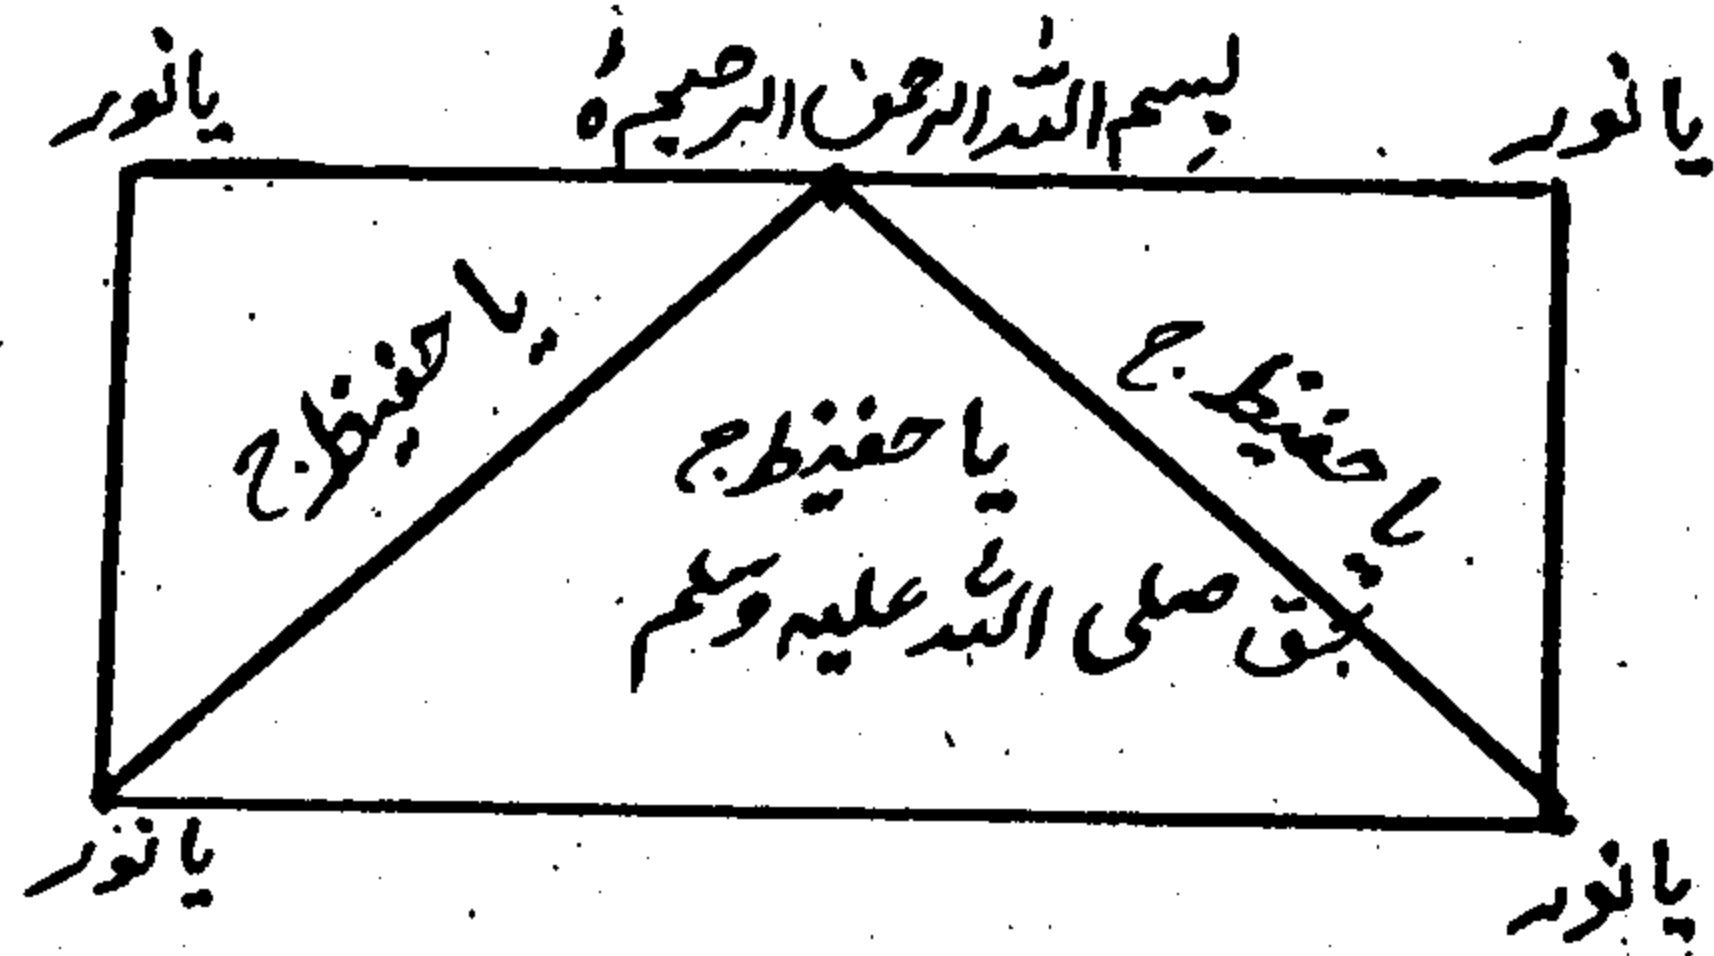 یا نور
بِسم اللہ الرحمن الرحیم ہ
یا نور
یا حفیظ ج
یا حفیظ ج
یا حفیظ ج
بحق صلی اللہ علیہ وسلم
یا نور
یا نور